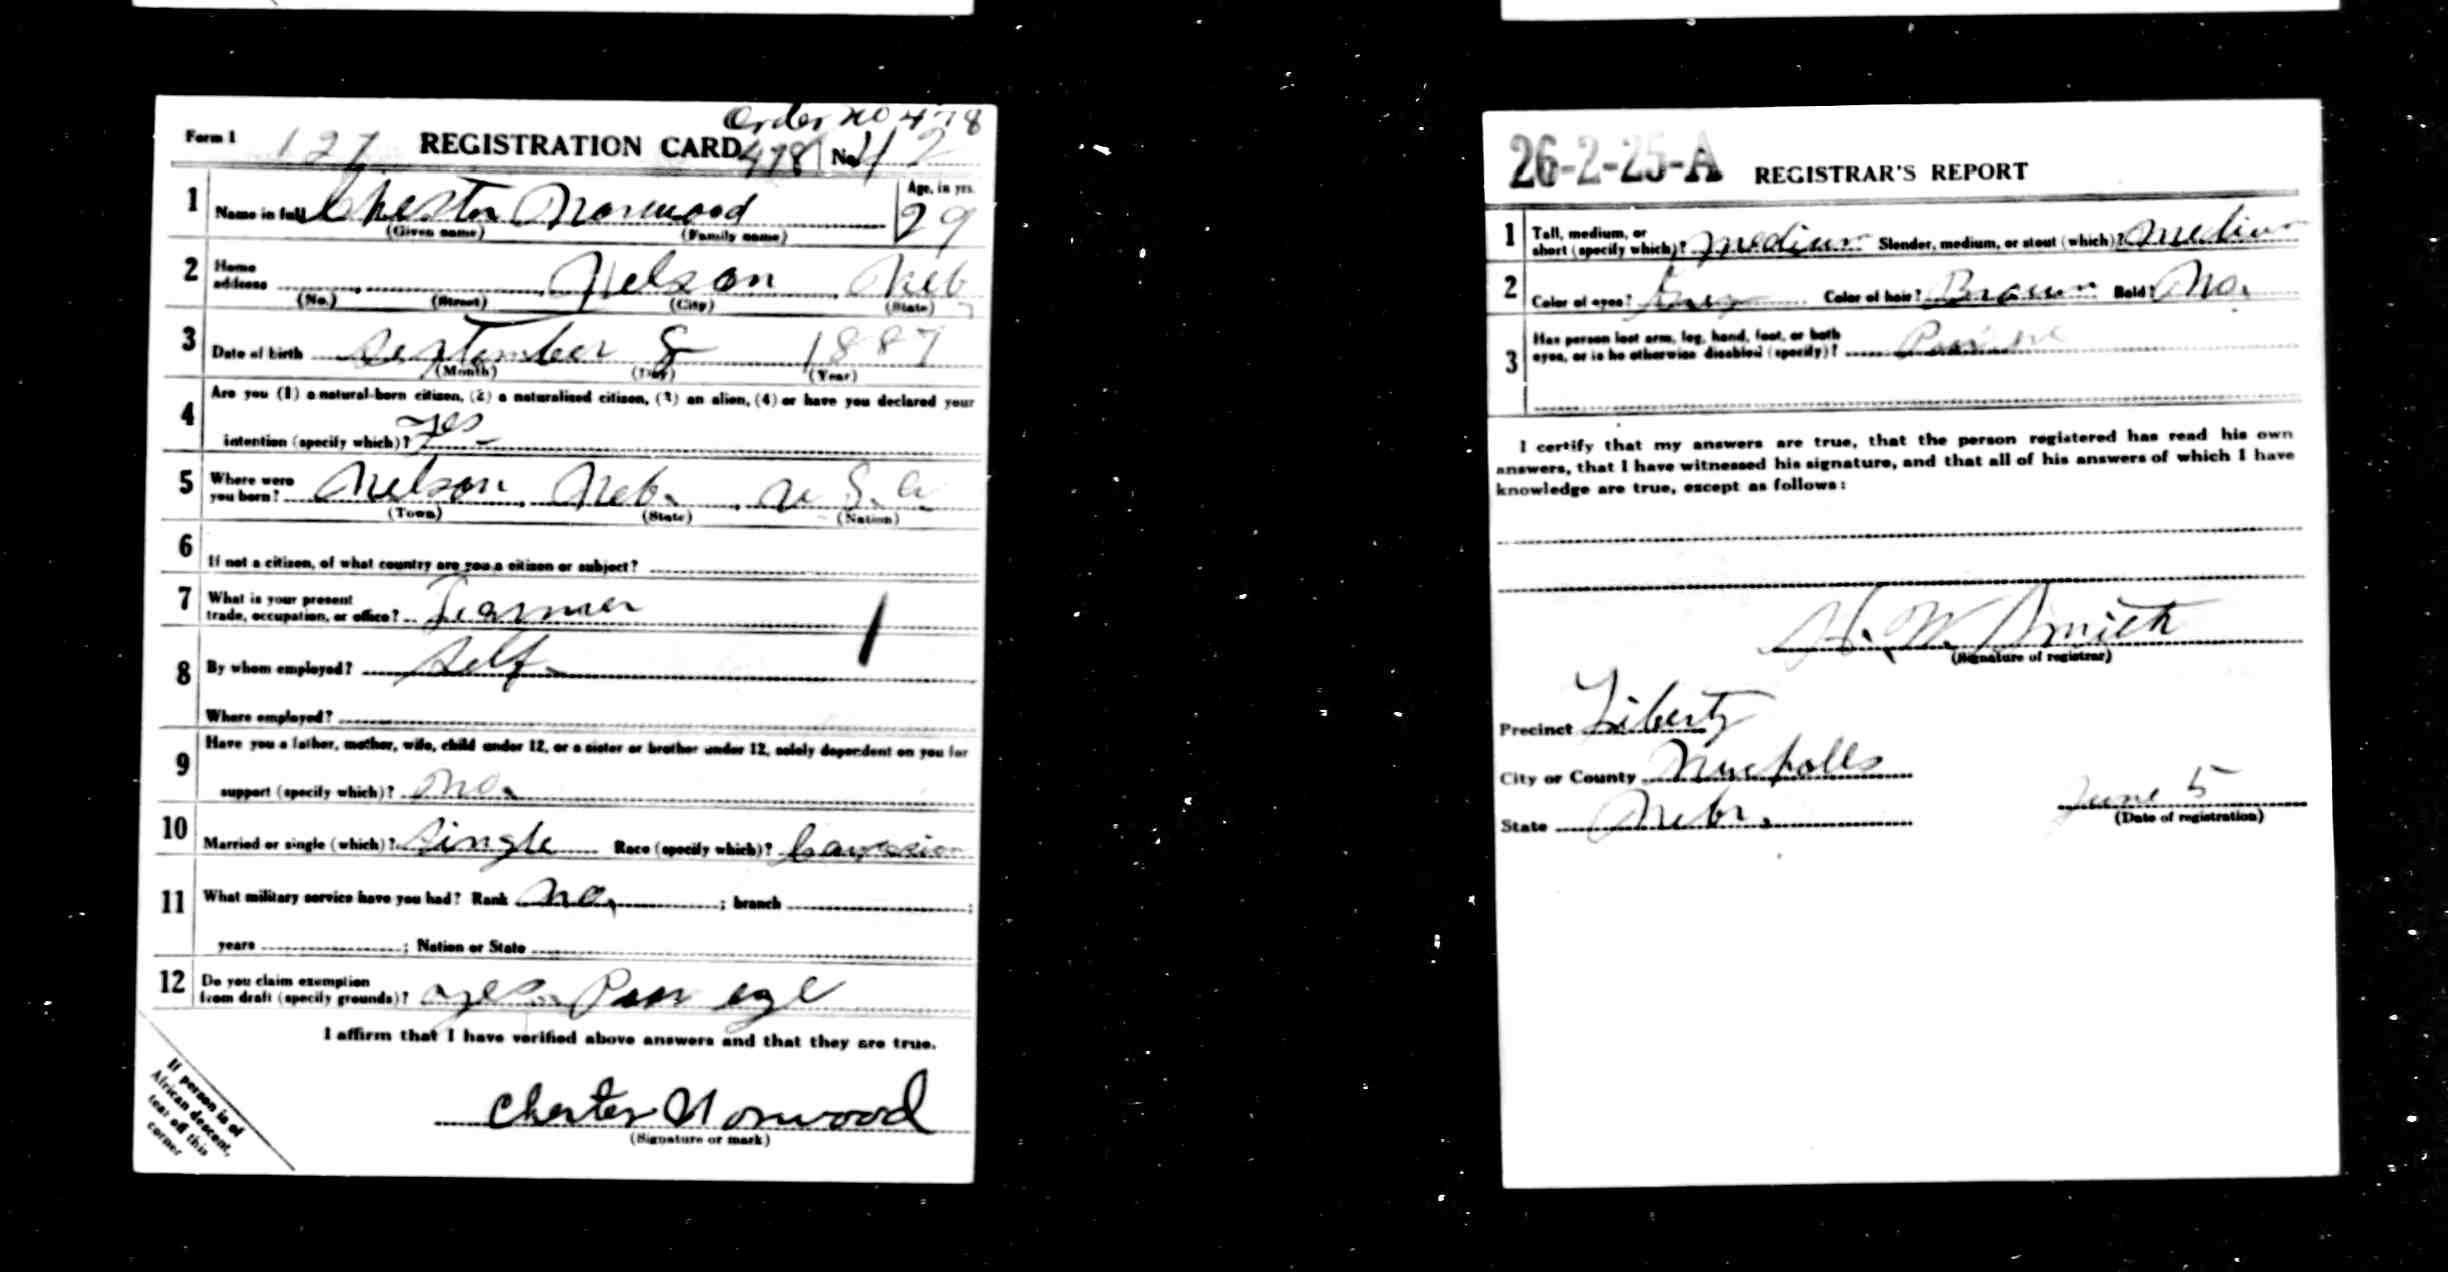 Order no 478
Form 1 127 REGISTRATION CARD 478 No. 42
1 Name in full Chester Norwood Age, in yrs. 29
(Given name) (Family name)
2 Home address Nelson Neb
(No.) (Street) (City) (State)
3 Date of birth September 8 1887
(Month) (Day) (Year)
4 Are you (1) a natural-born citizen, (2) a naturalized citizen, (3) an alien, (4) or have you declared your
intention (specify which)? yes
5 Where were you born? Nelson, Neb., U S. a
(Town) (State) (Nation)
6 If not a citizen, of what country are you a citizen or subject?
7 What is your present
trade, occupation, or office? Farmer 1
8 By whom employed? Self
Where employed?
9 Have you a father, mother, wife, child under 12, or a sister or brother under 12, solely dependent on you for
support (specify which)? no.
10 Married or single (which)? Single Race (specify which)? Caucasian
11 What military service have you had? Rank no, ; branch ;
years ; Nation or State
12 Do you claim exemption
from draft (specify grounds)? yes. Poor eye
I affirm that I have verified above answers and that they are true.
Chester Norwood
(Signature or mark)
If person is of
African descent,
tear off this
corner
26-2-25-A REGISTRAR'S REPORT
1 Tall, medium, or
short (specify which)? medium Slender, medium, or stout (which)? Medium
2 Color of eyes? Color of hair? Brown Bald? No.
3 Has person lost arm, leg, hand, foot, or both
eyes, or is he otherwise disabled (specify)?
I certify that my answers are true, that the person registered has read his own
answers, that I have witnessed his signature, and that all of his answers of which I have
knowledge are true, except as follows:
H. W. Smith
(Signature of registrar)
Precinct Liberty
City or County Nuckolls
State Nebr. June 5
(Date of registration)